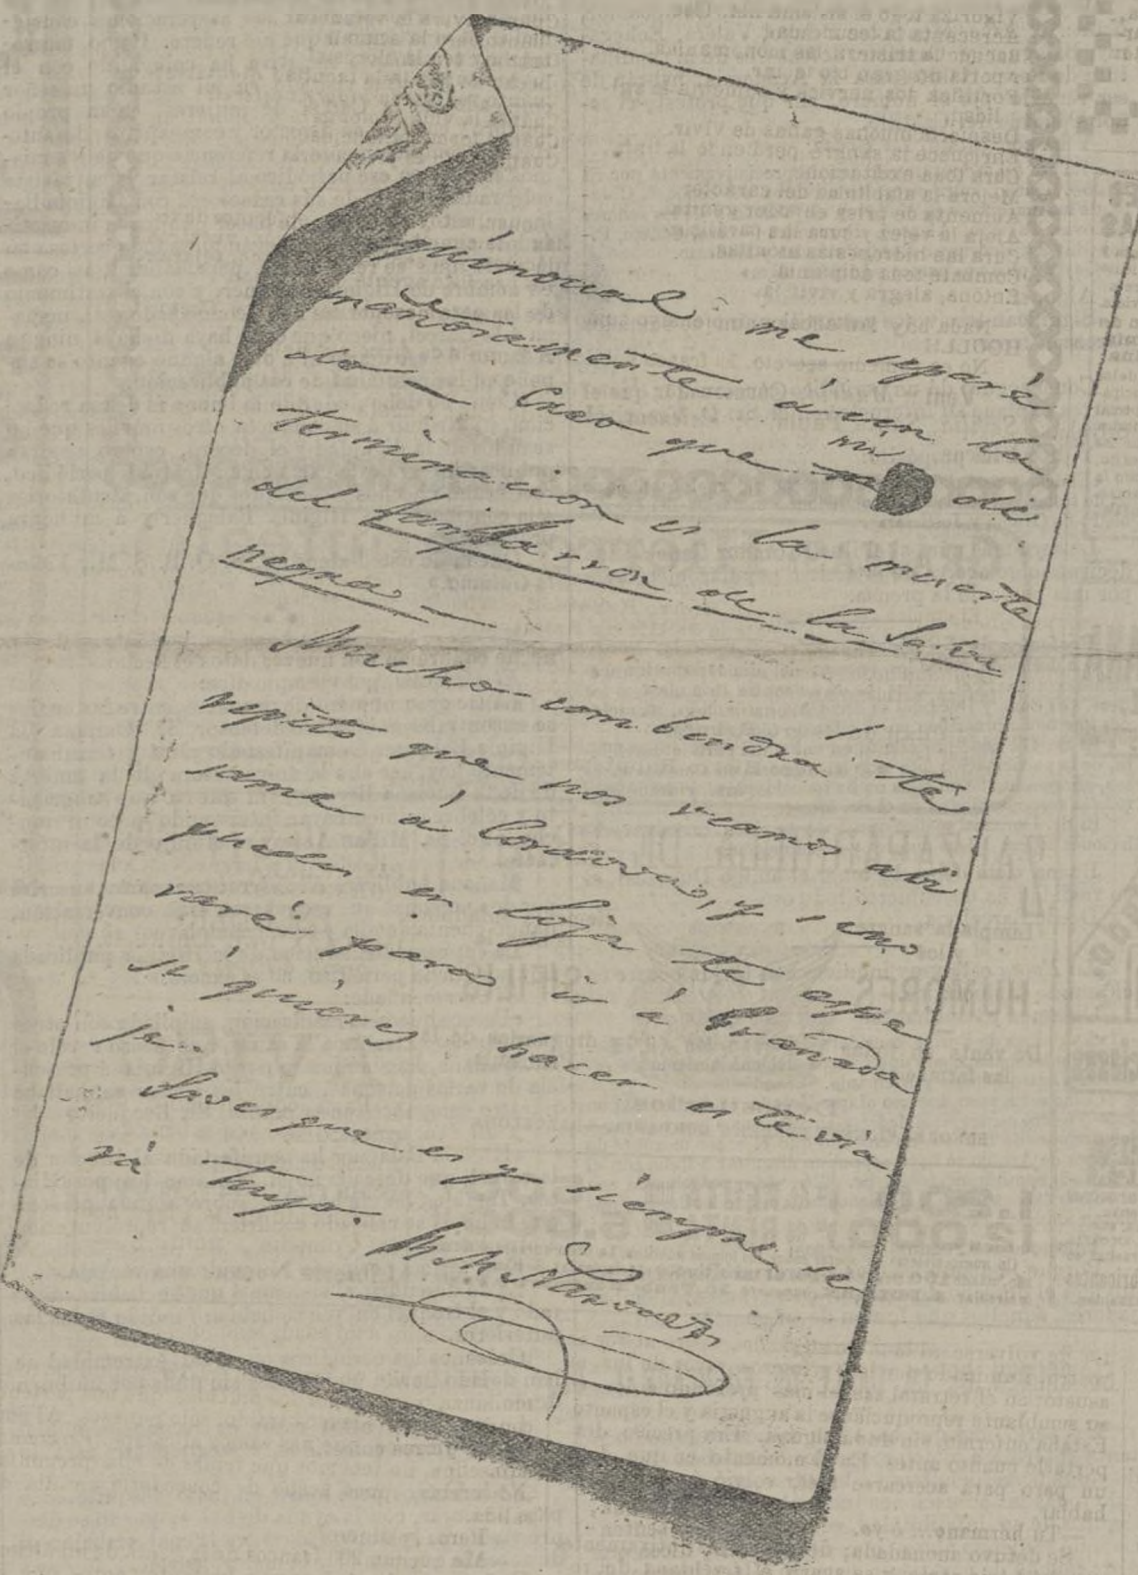 quinoual me separé
mañosamente á un la
do — Creo que mi de
terminacion es la muerte
del fanfarron de la Salva
negra. —
Mucho combendrá te
repito que nos veamos abi
same á Cordova, y sino
puedes en Loja te espe
raré para ir á Granada
si quieres hacer este via
je.
Saves que es y siempre se
rá tuyo.
R M Narvaez